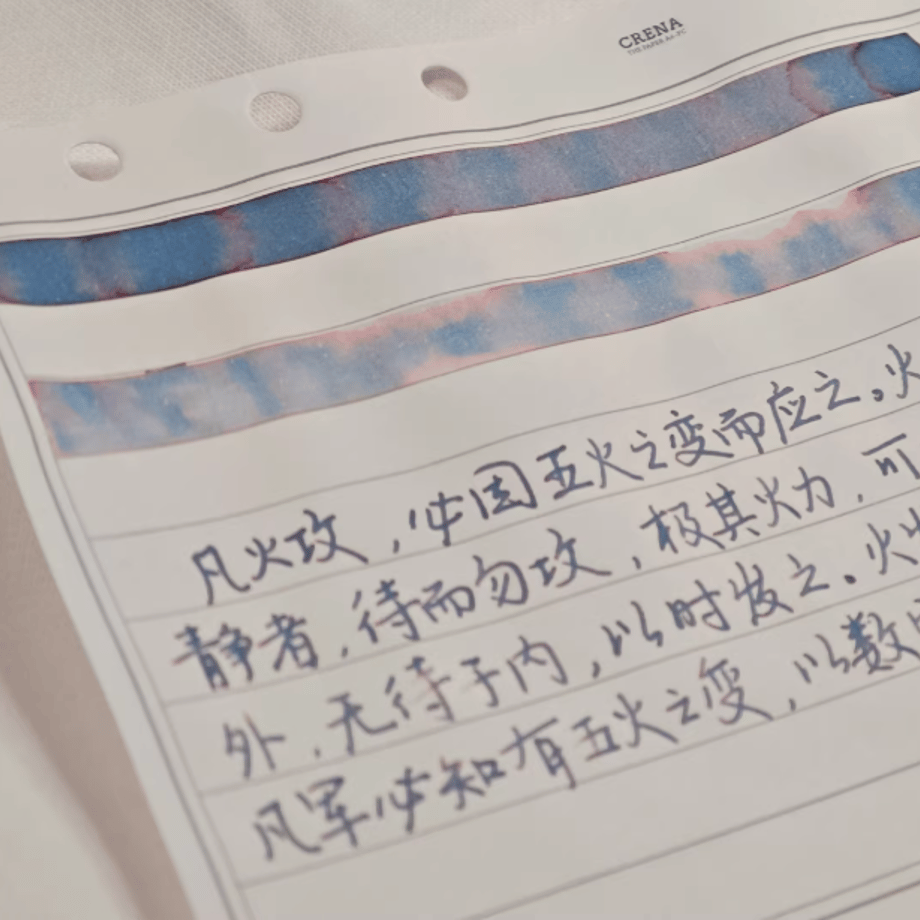 CRENA
THE PAPER As-PC
凡火攻，必因五火之变而应之。火
静者，待而勿攻，极其火力，可
外，无待于内，以时发之。火
凡军必知有五火之变，以数